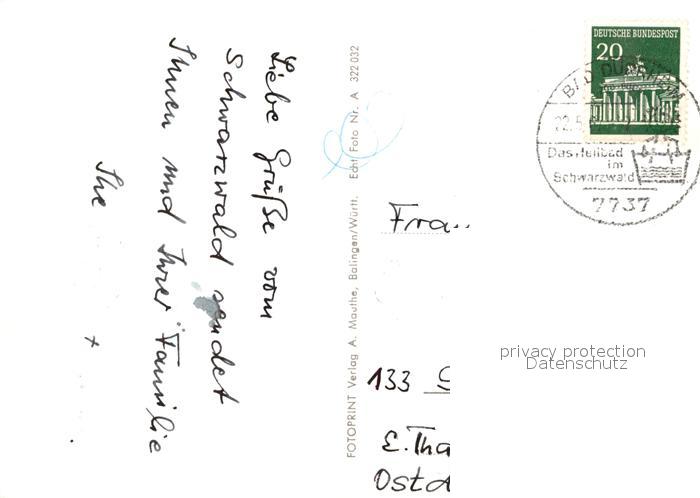 Liebe Grüße vom
Schwarzwald sendet
Ihnen und Ihrer Familie
Ihr
FOTOPRINT Verlag A. Mauthe, Balingen/Württ. Echt Foto Nr. A 322 032
DEUTSCHE BUNDESPOST
20
BAD DÜRRHEIM
22.5
Das Heilbad
im
Schwarzwald
7737
Frau
133
E. Tha
Ostd
privacy protection
Datenschutz